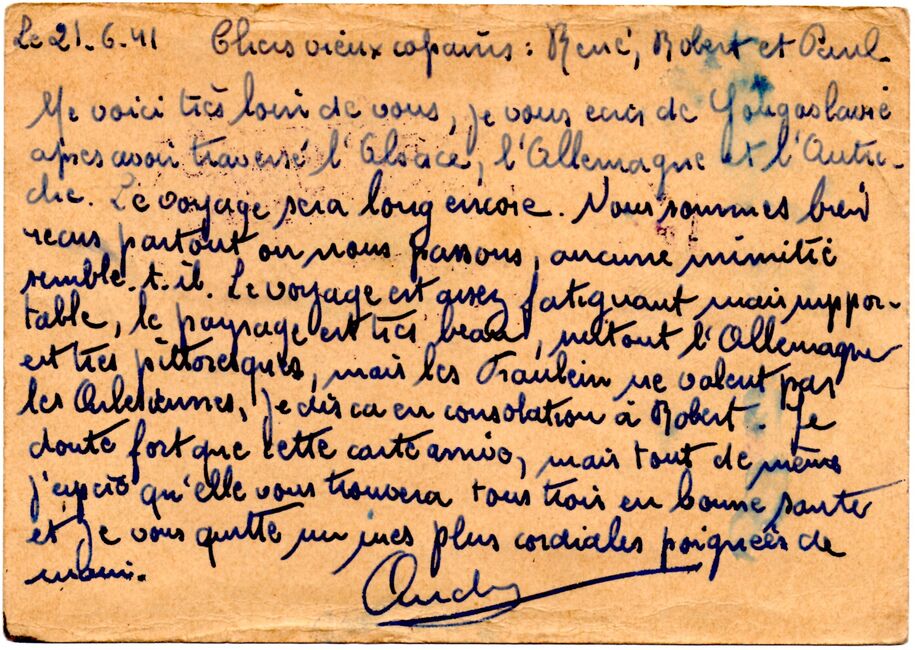 Le 21-6-41 Chers vieux copains : René, Robert et Paul.
Me voici très loin de vous, je vous ecris de Yougoslavie
apres avoir traversé l'Alsace, l'Allemagne et l'Autri-
che. Le voyage sera long encore. Nous sommes bien
recus partout ou nous passons, aucune inimitié
semble-t-il. Le voyage est assez fatiguant mais suppor-
table, le paysage est très beau, surtout l'Allemagne
est très pittoresque, mais les Fraulein ne valent pas
les Arlesiennes, je dis ca en consolation à Robert. Je
doute fort que cette carte arrive, mais tout de même
j'espère qu'elle vous trouvera tous trois en bonne santer
et je vous quitte sur mes plus cordiales poignées de
main.
André